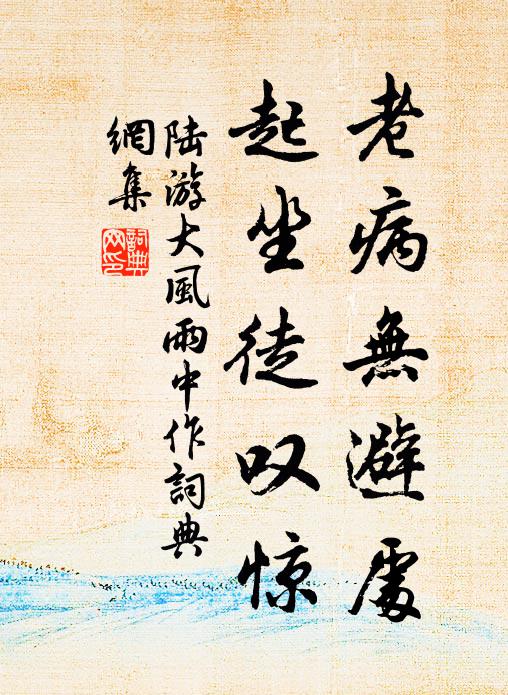 老病無避處
起坐徒叹惊
陆游大風雨中作詞典
網集
詞典
网印